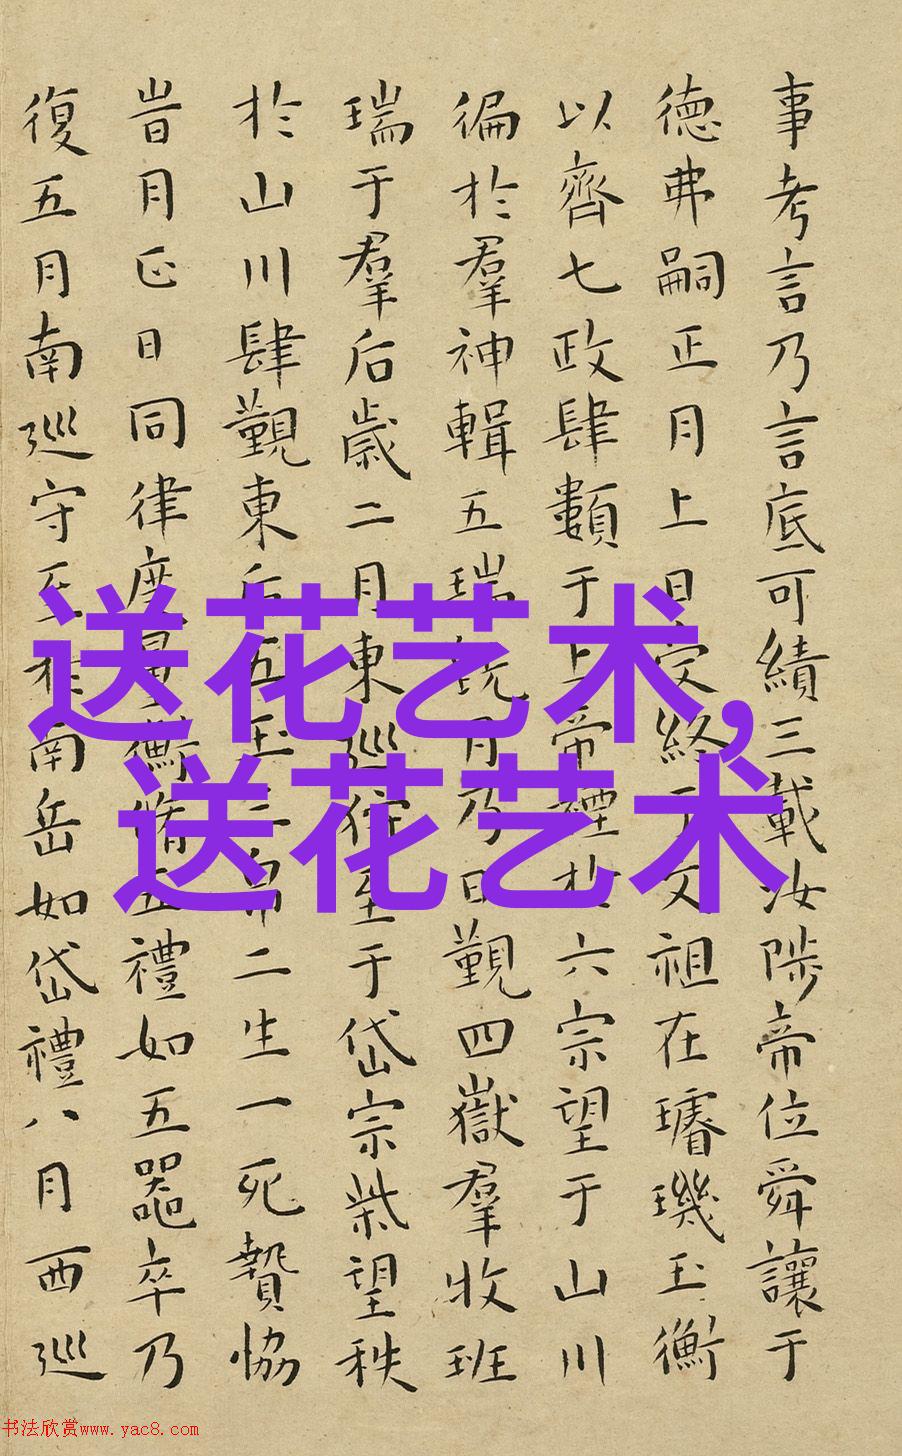 事考言乃言底可績三載汝陟帝位舜讓于
德弗嗣正月上日受終于文祖在璿璣玉衡
以齊七政肆類于上帝禋於六宗望于山川
徧於羣神輯五瑞既月乃日覲四嶽羣牧班
瑞于羣后歲二月東巡狩至于岱宗柴望秩
於山川肆覲東后五玉三帛二生一死贄協
旹月正日同律度量衡脩五禮如五器卒乃
復五月南巡守至於南岳如岱禮八月西巡
送花艺术,
送花艺术
书法欣赏www.yac8.com